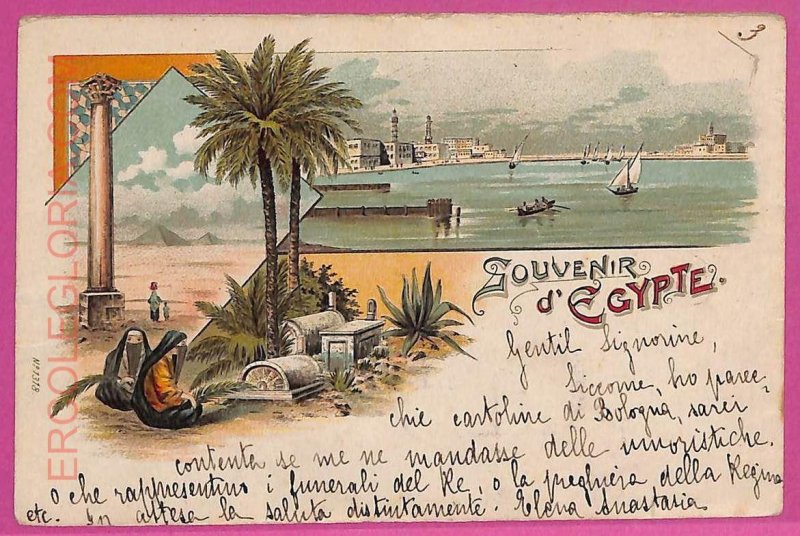 3
SOUVENIR
d'EGYPTE.
Gentil Signorine,
Siccome, ho parec-
chie cartoline di Bologna, sarei
contenta se me ne mandasse delle umoristiche.
o che rappresentino i funerali del Re, o la preghiera della Regina
etc. In attesa la saluta distintamente. Elena Anastasia
ERCOLEGLORIA.COM